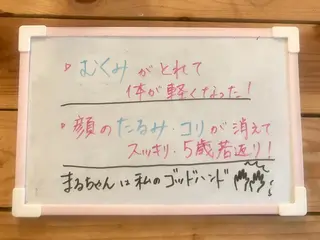 ▷ むくみがとれて
体が軽くなった!
▷ 顔のたるみ・コリが消えて
スッキリ・5歳若返り!
まるちゃんは私のゴッドハンド